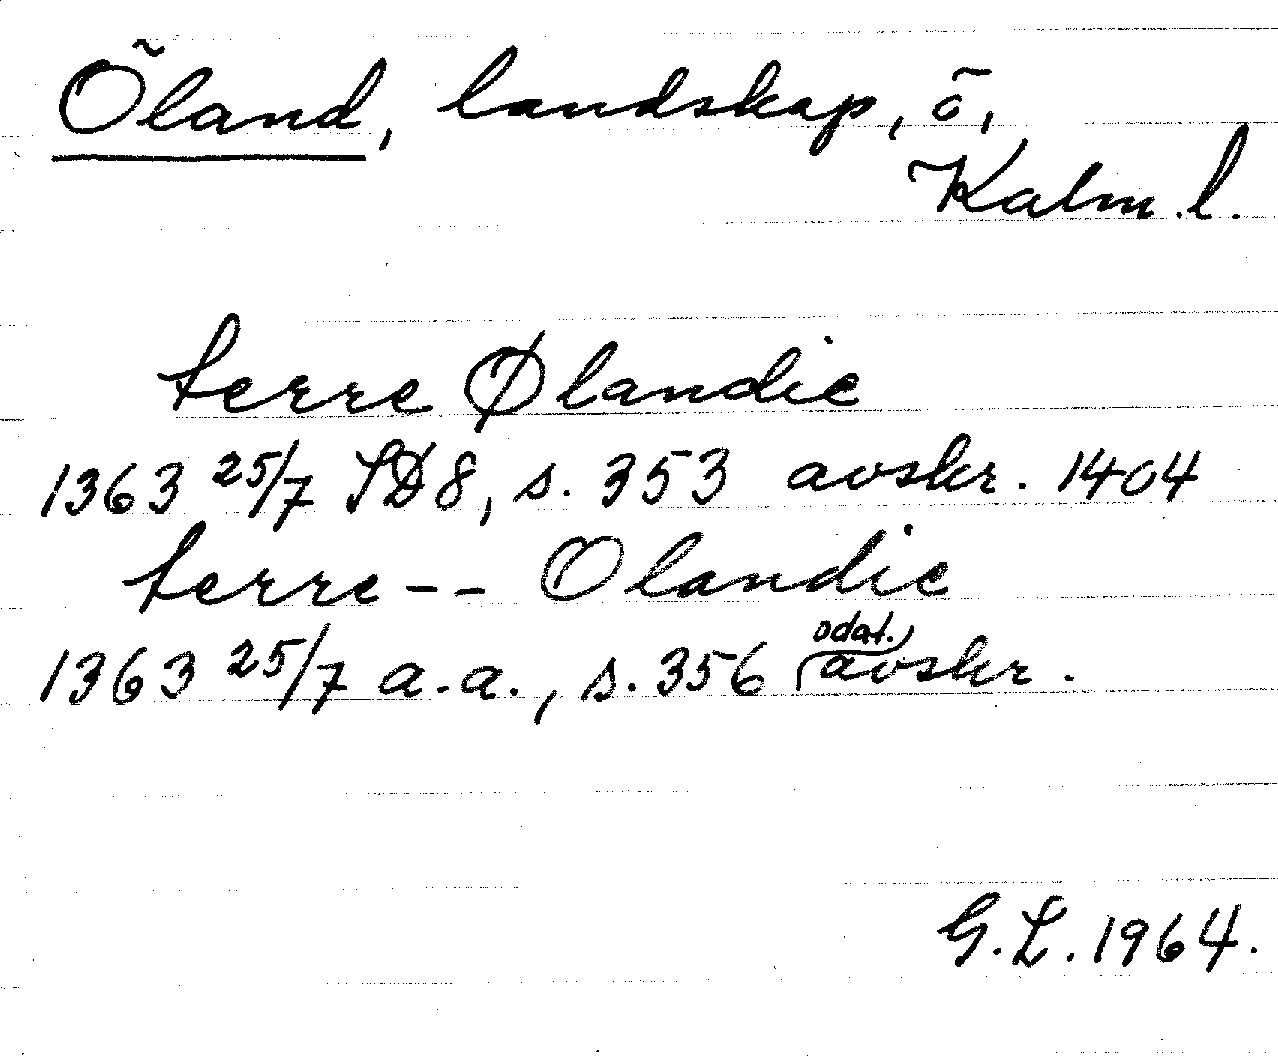 Öland, landskap, ö,
Kalm. l.
terre Ølandie
1363 25/7 SD 8, s. 353 avskr. 1404
terre -- Olandie
1363 25/7 a.a., s. 356 odat. avskr.
G.L. 1964.